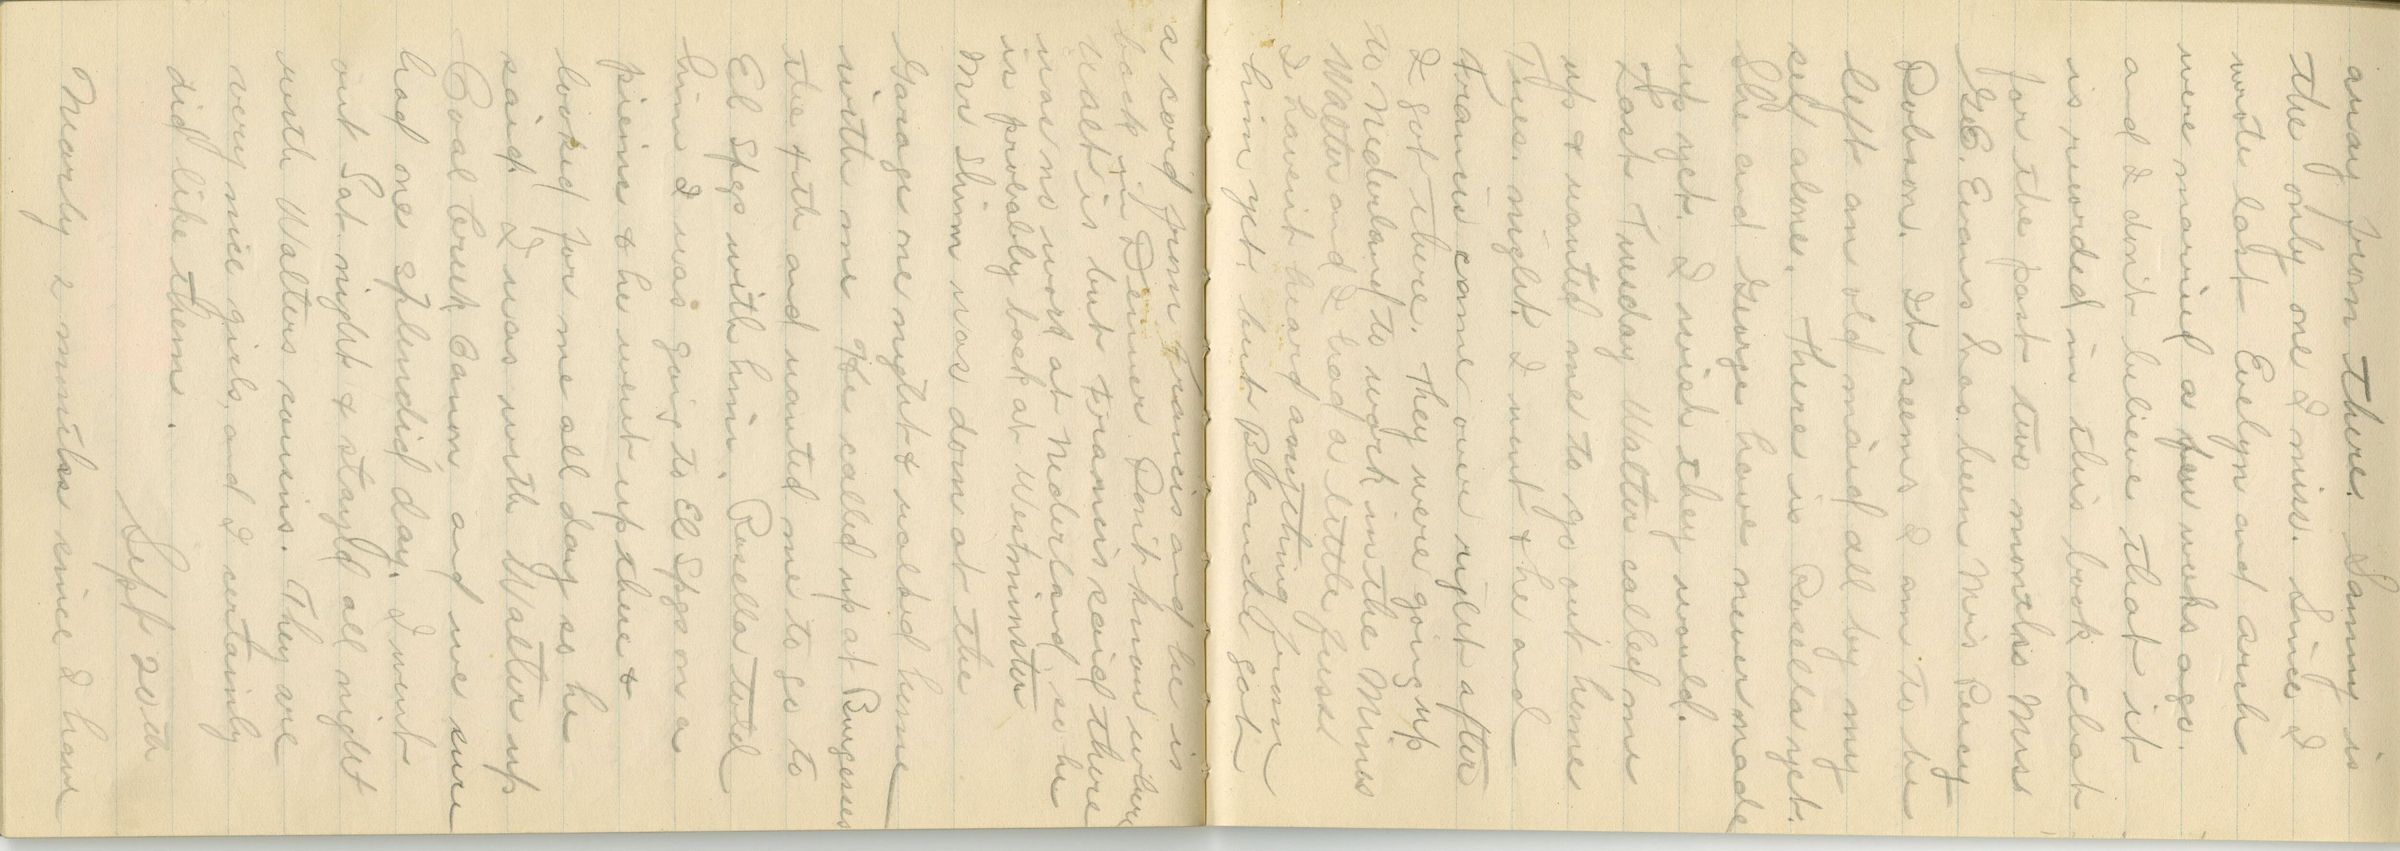 away from there. Sammy is
the only one I miss. Since I
wrote last Evelyn and arch
were married a few weeks ago.
and I don't believe that it
is recorded in this book that
for the past two months Miss
G.E. Evans has been Mrs Percy
Dobson. It seems I am to be
left an old maid all by my
self alone. There is Rosella yet.
She and George have never made
up yet. I wish they would.
Last Tuesday Walter called me
up & wanted me to go out home
Tues. night. I went & he and
Francis came over right after
I got there. They were going up
to Nederland to work in the Mines
Walter and I had a little fuss
I haven't heard anything from
him yet, but Blanche got
a card from Francis and he is
back in Denver Don't know where
Walt is but Francis said there
was no work at Nederland, so he
is probably back at Westminster
Mr Shinn was down at the
Garage one night & walked home
with me He called up at Burgesses
the 4th and wanted me to go to
El Spgs with him. Rosella told
him I was going to El Spgs on a
picnic & he went up there &
looked for me all day so he
said. I was with Walter up
Coal Creek Canon and we sure
had one splendid day. I went
out Sat night & stayed all night
with Walters cousins. They are
very nice girls, and I certainly
did like them.
Sept 20th
Nearly 2 months since I have